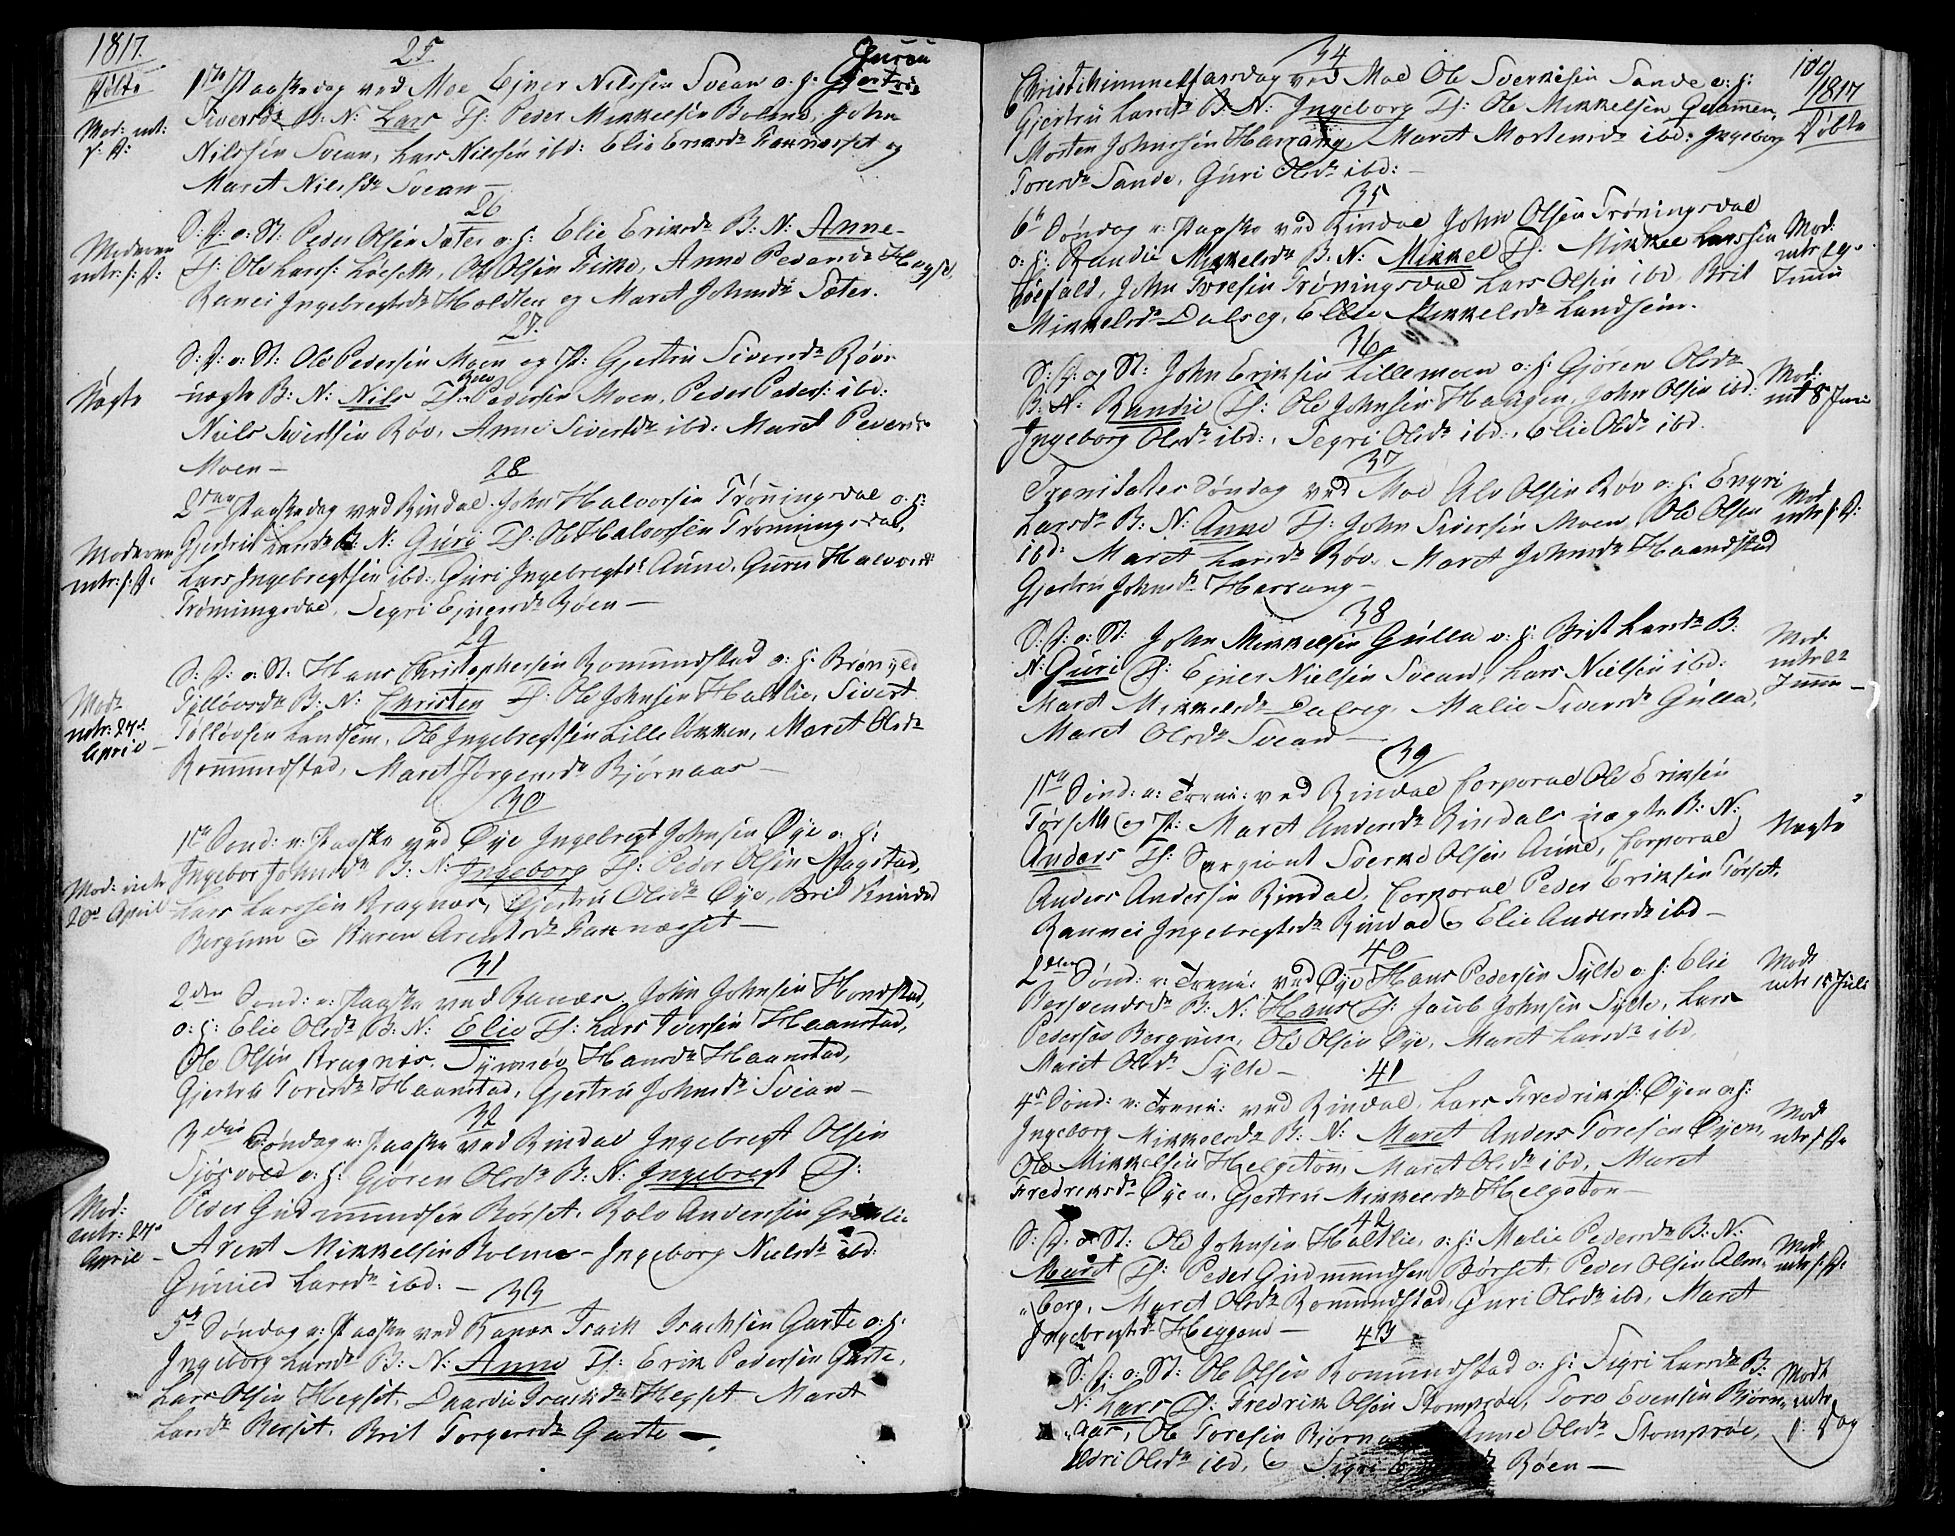 1817.
Døbte
25
1ste Paaskedag ved Moe Ejner Nilssen Svean o: h: Guru Gjertrue
Siversdr B: N: Lars F: Peder Mikkelsen Bolme, John
Nilssen Svean, Lars Nilsen ibd: Elie Ersdr Fannesset og
Maret Nilsdr Svean —
Mod: int:
s. D:
26
S: D: o: St: Peder Olsen Sæter o: h: Elie Eriksdr B: N: Anne
F: Ole Larss: Løeseth, Ole Olsen Kirke, Anne Pedersdr
Ranei Ingebregtsdr Holdten og Maret Johnsdr Sæter.
Moderen
intr: s: D:
27.
S: D: o: St: Ole Pedersen Moen og P: Gjertru Siversdr Røv
uægte B: N: Nils F: Pedersen Moen, Peder Peders: ibd:
Niels Sivertsen Røv, Anne Sivertsdr ibd: Maret Pedersdr
Moen —
Uægte
28
2den Paaskedag ved Rindal John Halvorsen Trønningsdal o: h:
Gjertrud Larsdr B: N: Guri F: Ole Halvorsen Trønningsdal,
Lars Ingebregtsen ibd: Guri Ingebregtsdr Aune, Guru Halvorsdr
Trønningsdal, Segri Ejnersdr Røen —
Moderen
intr: s: D:
29
S: D: o: St: Hans Christophersen Romundstad o: h: Brønyld
Tølløvsdr B: N: Christen F: Ole Johnsen Haltlie, Sivert
Tølløvsen Landsem, Ole Ingebregtsen Lilleløkken, Maret Olsdr
Romundstad, Maret Jørgensdr Bjørnaas —
Mod:
intr: 27de
April —
30
1ste Sønd: e: Paaske ved Øye Ingebregt Johnsen Øye o: h:
Ingebor Johnsdr B: N: Ingeborg F: Peder Olsen Mogstad,
Lars Larssen Kragnæs, Gjertru Olsdr Øye, Brit Knudsd
Bergum og Karen Arentsdr Fannesset —
Mod: intr
20de April
31
2den Sønd: e: Paaske ved Ranæs John Johnsen Hondstad,
o: h: Elie Olsdr B: N: Elie F: Lars Iversen Haanstad,
Ole Olsen Kragnæs, Synnøv Hansdr Haanstad,
Gjertru Toresdr Haanstad, Gjertru Johnsdr Svean —
32
3die Søndag e: Paaske ved Rindal Ingebregt Olsen
Sjøsvold o: h: Gjøren Olsdr B: N: Ingebregt F:
Peder Gudmundsen Børset, Rolv Andersen
Arent Mikkelsen Bolme — Ingeborg Nielsdr ibd:
Guned Larsdr ibd: —
Mod:
intr: 27de
April —
33
5te Søndag e: Paaske ved Ranæs Isach Isachsen Garte o: h:
Ingeborg Larsdr B: N: Anne F: Erik Pedersen Garte,
Lars Olsen Hegset, Isachsdr Hegset Maret
Larsdr Berset, Brit Torgersdr Garte —
1817
Døbte
34
Christi himmelfartsdag ved Moe Ole Sverkesen Sande o: h:
Gjertru Larsdr B: N: Ingeborg F: Ole Mikkelsen
Morten Johnssen Harrang, Maret Mortensdr ibd: Ingeborg
Toresdr Sande, Guri Olsdr ibd: —
35
6te Søndag e: Paaske ved Rindal John Olsen Trøningsdal
o: h: Randie Mikkelsdr B: N: Mikkel F: Mikkel Larssen
Løefald, John Toresen Trøningsdal Lars Olsen ibd, Brit
Mikkelsdr Dalseg, Elie Mikkelsdr Landsem.
Mod:
intr 29
Junii
36
S: D: og St: John Eriksen Lillemoen o: h: Gjøren Olsdr
B: N: Randie F: Ole Johnsen Haugen, John Olsen ibd:
Ingeborg Olsdr ibd:, Segri Olsdr ibd:, Elie Olsdr ibd
Mod:
int 8 Juni
37
Trenitates Søndag ved Moe Alv Olsen Røv o: h: Engri
Larsdr B: N: Anne F: John Siversen Moen, Ole Olsen
ibd: Maret Larsdr Røv, Maret Johnsdr Haandstad
Gjertru Johnsdr Harrang —
Mod
intr s: D:
38
S: D: o: St: John Mikkelsen Gulla o: h: Brit Larsdr B:
N: Guri F: Ejner Nielsen Svean, Lars Nielsen ibd:
Maret Mikkelsdr Dalseg, Malie Siversdr Gulla,
Maret Olsdr Svean —
Mod:
intr
Junii —
39
1ste Sønd: e: Treni: ved Rindal Corporal Ole Eriksen
Tørseth og P: Maret Andersdr Rindals uægte B: N:
Anders F: Sergiant Sverke Olsen Aune, Corporal
Anders Andersen Rindal, Corporal Peder Eriksen Tørset,
Rannei Ingebregtsdr Rindal og Elie Andersdr ibd —
Uægte
40
2den Sønd: e: Treni: ved Øye Hans Pedersen Sylte o: h: Elie
B: N: Hans F: Jacob Johnsen Sylte, Lars
Pedersen Bergum, Ole Olsen Øye, Maret Larsdr ibd
Maret Olsdr Sylte —
Modr
intr Juli
41
4de Sønd: e: Treni: ved Rindal, Lars Fredriks: Øyen o: h:
Ingeborg Mikkelsdr B: N: Maret Anders Toresen Øyen,
Ole Mikkelsen Helgeton, Maret Olsdr ibd, Maret
Fredriksdr Øyen, Gjertru Mikkelsdr Helgeton —
Modr
intr s: D:
42
S: D: o: St: Ole Johnsen Haltlie, o: h: Malie Pedersdr B: N:
Maret F: Peder Gudmundsen Børset, Peder Olsen Alm-
„berg, Maret Olsdr Romundstad, Guri Olsdr ibd, Maret
Ingebregtsdr Heggem —
Modr
intr s: D:
43
S: D: o: St: Ole Olsen Romundstad o: h: Sigri Larsdr B:
N: Lars F: Fredrik Olsen Stomprøe, Tore Evensen Bjørn-
„aas, Ole Toresen Bjørnaas Anne Olsdr Stomprøe,
Olsdr ibd, og Sigri Røen —
Modr
intr
s: Dag